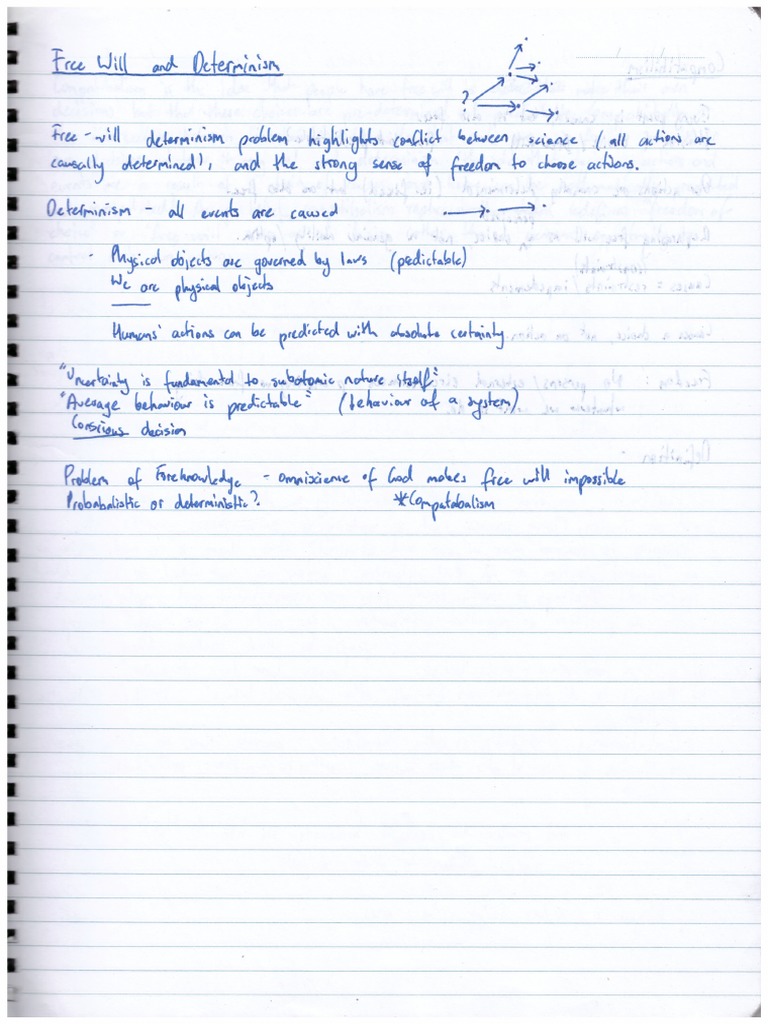 Free Will and Determinism
?
Free-will determinism problem highlights conflict between science (all actions are
causally determined), and the strong sense of freedom to choose actions.
Determinism - all events are caused
- Physical objects are governed by laws (predictable)
We are physical objects
Humans' actions can be predicted with absolute certainty
"Uncertainty is fundamental to subatomic nature itself"
"Average behaviour is predictable" (behaviour of a system)
Conscious decision
Problem of Foreknowledge - omniscience of God makes free will impossible
Probabalistic or deterministic? *Compatabalism